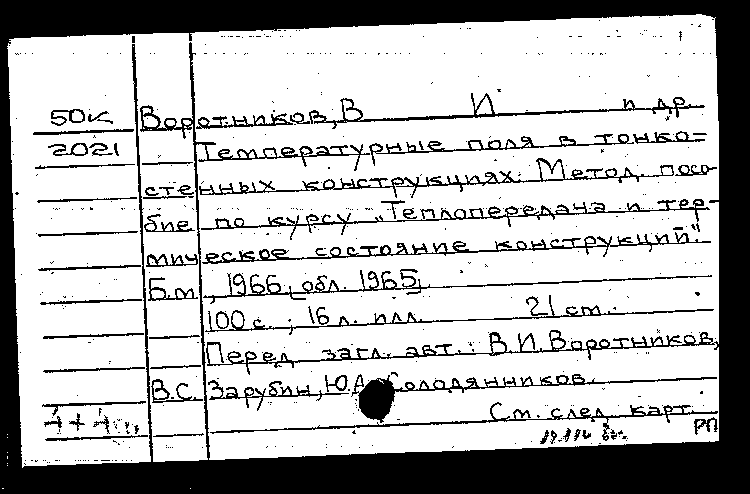 50К Воротников, В И и др.
2021 Температурные поля в тонко=
стенных конструкциях. Метод. посо-
бие по курсу „Теплопередача и тер-
мическое состояние конструкций".
Б.м., 1966, [обл. 1965]
100 с.; 16 л. илл. 21 см.
Перед загл. авт.: В.И. Воротников,
В.С. Зарубин, Ю.А. Солодянников.
4+4
См. след. карт.
РП